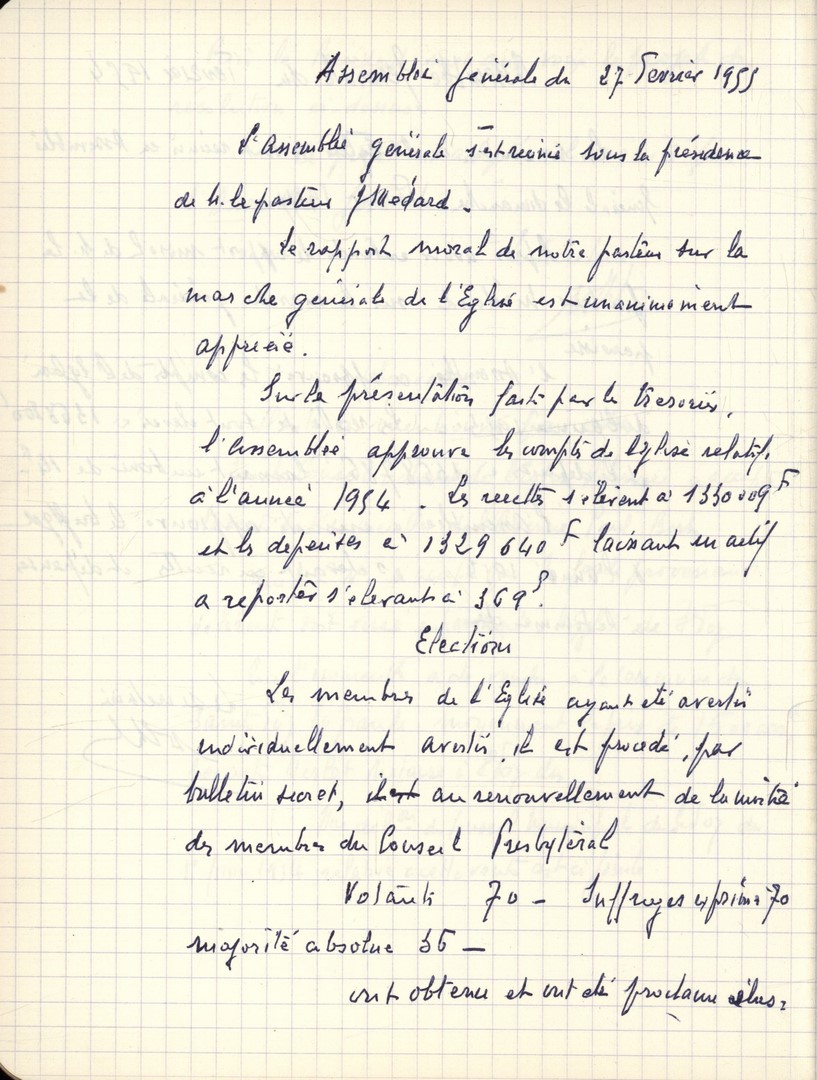 Assemblée générale du 27 Fevrier 1955
L'assemblée générale s'est reunie sous la présidence
de M. le pasteur J Médard.
Le rapport moral de notre pasteur sur la
marche générale de l'Eglise est unanimement
apprecié.
Sur la présentation faite par le tresorier,
l'assemblée approuve les comptes de l'Eglise relatifs
à l'année 1954. Les recettes s'elèvent à 1330009F
et les depenses à 1329640F laissant un actif
a reporter s'elevant à 369F.
Elections
Les membres de l'Eglise ayant été avertis
individuellement avertis, il est procedé, par
bulletin secret, il est au renouvellement de la moitié
des membres du Conseil Presbytéral
Votants 70 - Suffrages exprimés 70
majorité absolue 36 —
ont obtenu et ont été proclamé élus: